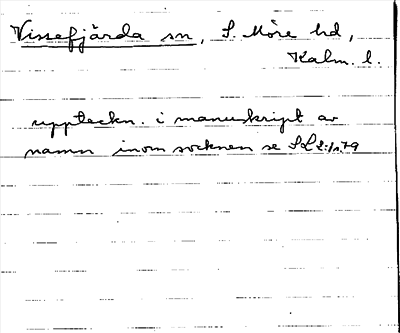 Vissefjärda sn, S. Möre hd,
Kalm. l.
uppteckn. i manuskript av
namn inom socknen se